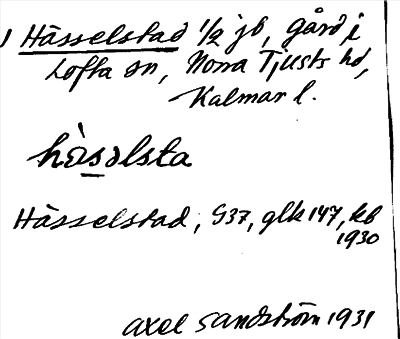 1 Hässelstad 1/2 jb, gård i
Lofta sn, Norra Tjusts hd,
Kalmar l.
hàsəlsta
Hässelstad, S37, glk 147, kb
1930
Axel Sandström 1931